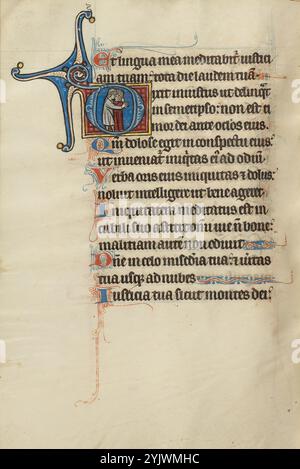 Et lingua mea meditabit' iustici
am tuam: tota die laudem tuā.
Dixit iniustus ut delinqt
in semetipso: non est ti
mor dei ante oculos eius.
Qm̄ dolose egit in conspectu eius:
ut inveniat iniqitas ei' ad odiū.
Verba oris eius iniquitas & dolus:
noluit intelligere ut bene ageret.
Iniquitatem meditatus est in
cubili suo astitit omi vie n̄ bone:
malitiam autē non odivit.
Dn̄e in celo misēdia tua: & vitas
tua usq ad nubes
Iusticia tua sicut montes dei:
alamy
Image ID: 3CYJWMHC
www.alamy.com